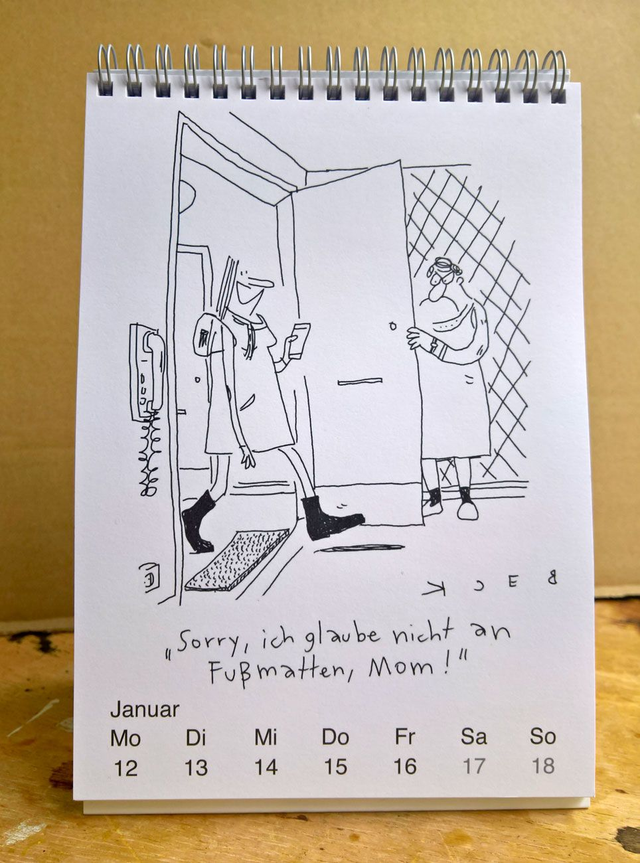 BECK
„Sorry, ich glaube nicht an
Fußmatten, Mom!“
Januar
Mo Di Mi Do Fr Sa So
12 13 14 15 16 17 18